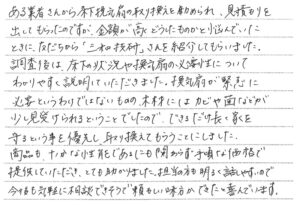 ある業者さんから床下換気扇の取り換えを勧められ、見積りを
出してもらったのですが、金額が高くどうしたものかと悩んでいた
ときに、友だちから「三和技研」さんを紹介してもらいました。
調査後は、床下の状況や換気扇の必要性について
わかりやすく説明していただきました。換気扇が緊急に
必要というわけではないものの木材にはカビや菌などが
少し見受けられるということでしたので、できるだけ長く家を
守るという事を優先し取り換えてもらうことにしました。
商品も、十分な性能であるにも関わらず手頃な価格で
提供していただき、とても助かりました。担当の方も明るく話しやすいので
今後も気軽に相談できそうで頼もしい味方ができたと喜んでいます。